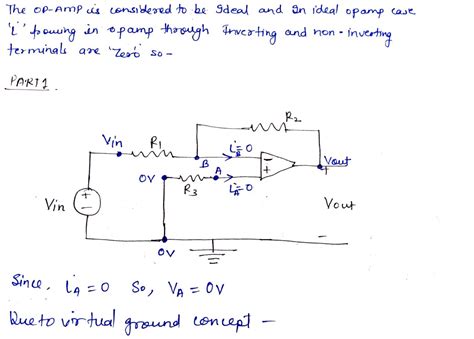 The OP-AMP is considered to be Ideal and In ideal opamp case
'i' flowing in opamp through Inverting and non-inverting
terminals are 'Zero' so -
PART1.
R2
Vin
R1
iB=0
B
Vout
0V
A
R3
iA=0
Vin
Vout
0V
Since, iA = 0 So, VA = 0V
Due to virtual ground concept -